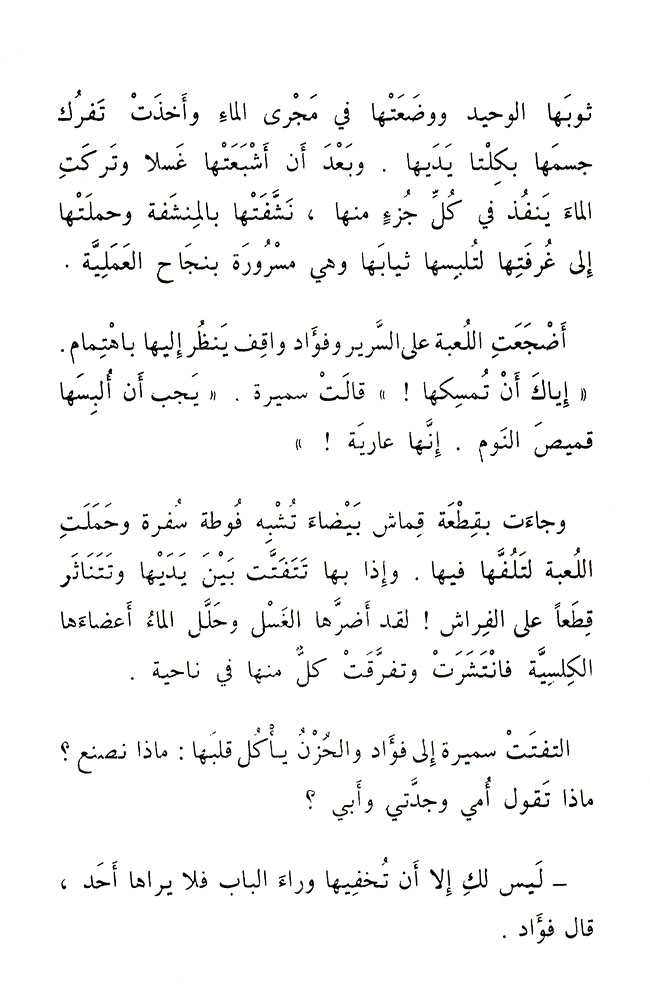 ثوبَها الوحيد ووضَعَتْها في مَجْرى الماءِ وأَخذَتْ تَفرُك
جسمَها بكِلْتا يَدَيها . وبَعْدَ أَن أَشْبَعَتْها غَسلا وتَركَتِ
الماءَ يَنفُذ في كُلِّ جُزءٍ منها ، نَشَّفَتْها بالمِنشفة وحملَتْها
إلى غُرفَتِها لتُلبِسها ثيابَها وهي مسْرُورَة بنجَاح العَمَلِيَّة .
أَضْجَعَتِ اللُعبة على السَّرير وفؤَاد واقِف يَنظُر إليها باهْتِمام.
« إِياكَ أَنْ تُمسِكها ! » قالَتْ سميرة . « يَجب أَن أُلبِسَها
قميصَ النَوم . إِنَّها عارِيَة ! »
وجاءَت بقِطْعَة قِماش بَيْضاءَ تُشْبِه فُوطة سُفرة وحَمَلَتِ
اللُعبة لتَلُفَّها فيها . وإذا بها تَتَفَتَّت بَيْنَ يَدَيْها وتَتَنَاثَر
قِطَعاً على الفِراش ! لقد أَضرَّها الغَسْل وحَلَّل الماءُ أَعضاءَها
الكِلسِيَّة فانْتَشَرَتْ وتفرَّقَتْ كلٌّ منها في ناحية .
التفتَتْ سميرة إلى فؤَاد والحُزْنُ يأْكُل قلبَها : ماذا نصنع ؟
ماذا تَقول أُمي وجدَّتي وأَبي ؟
– لَيس لكِ إلا أَن تُخفِيها وراءَ الباب فلا يراها أَحَد ،
قال فؤَاد .